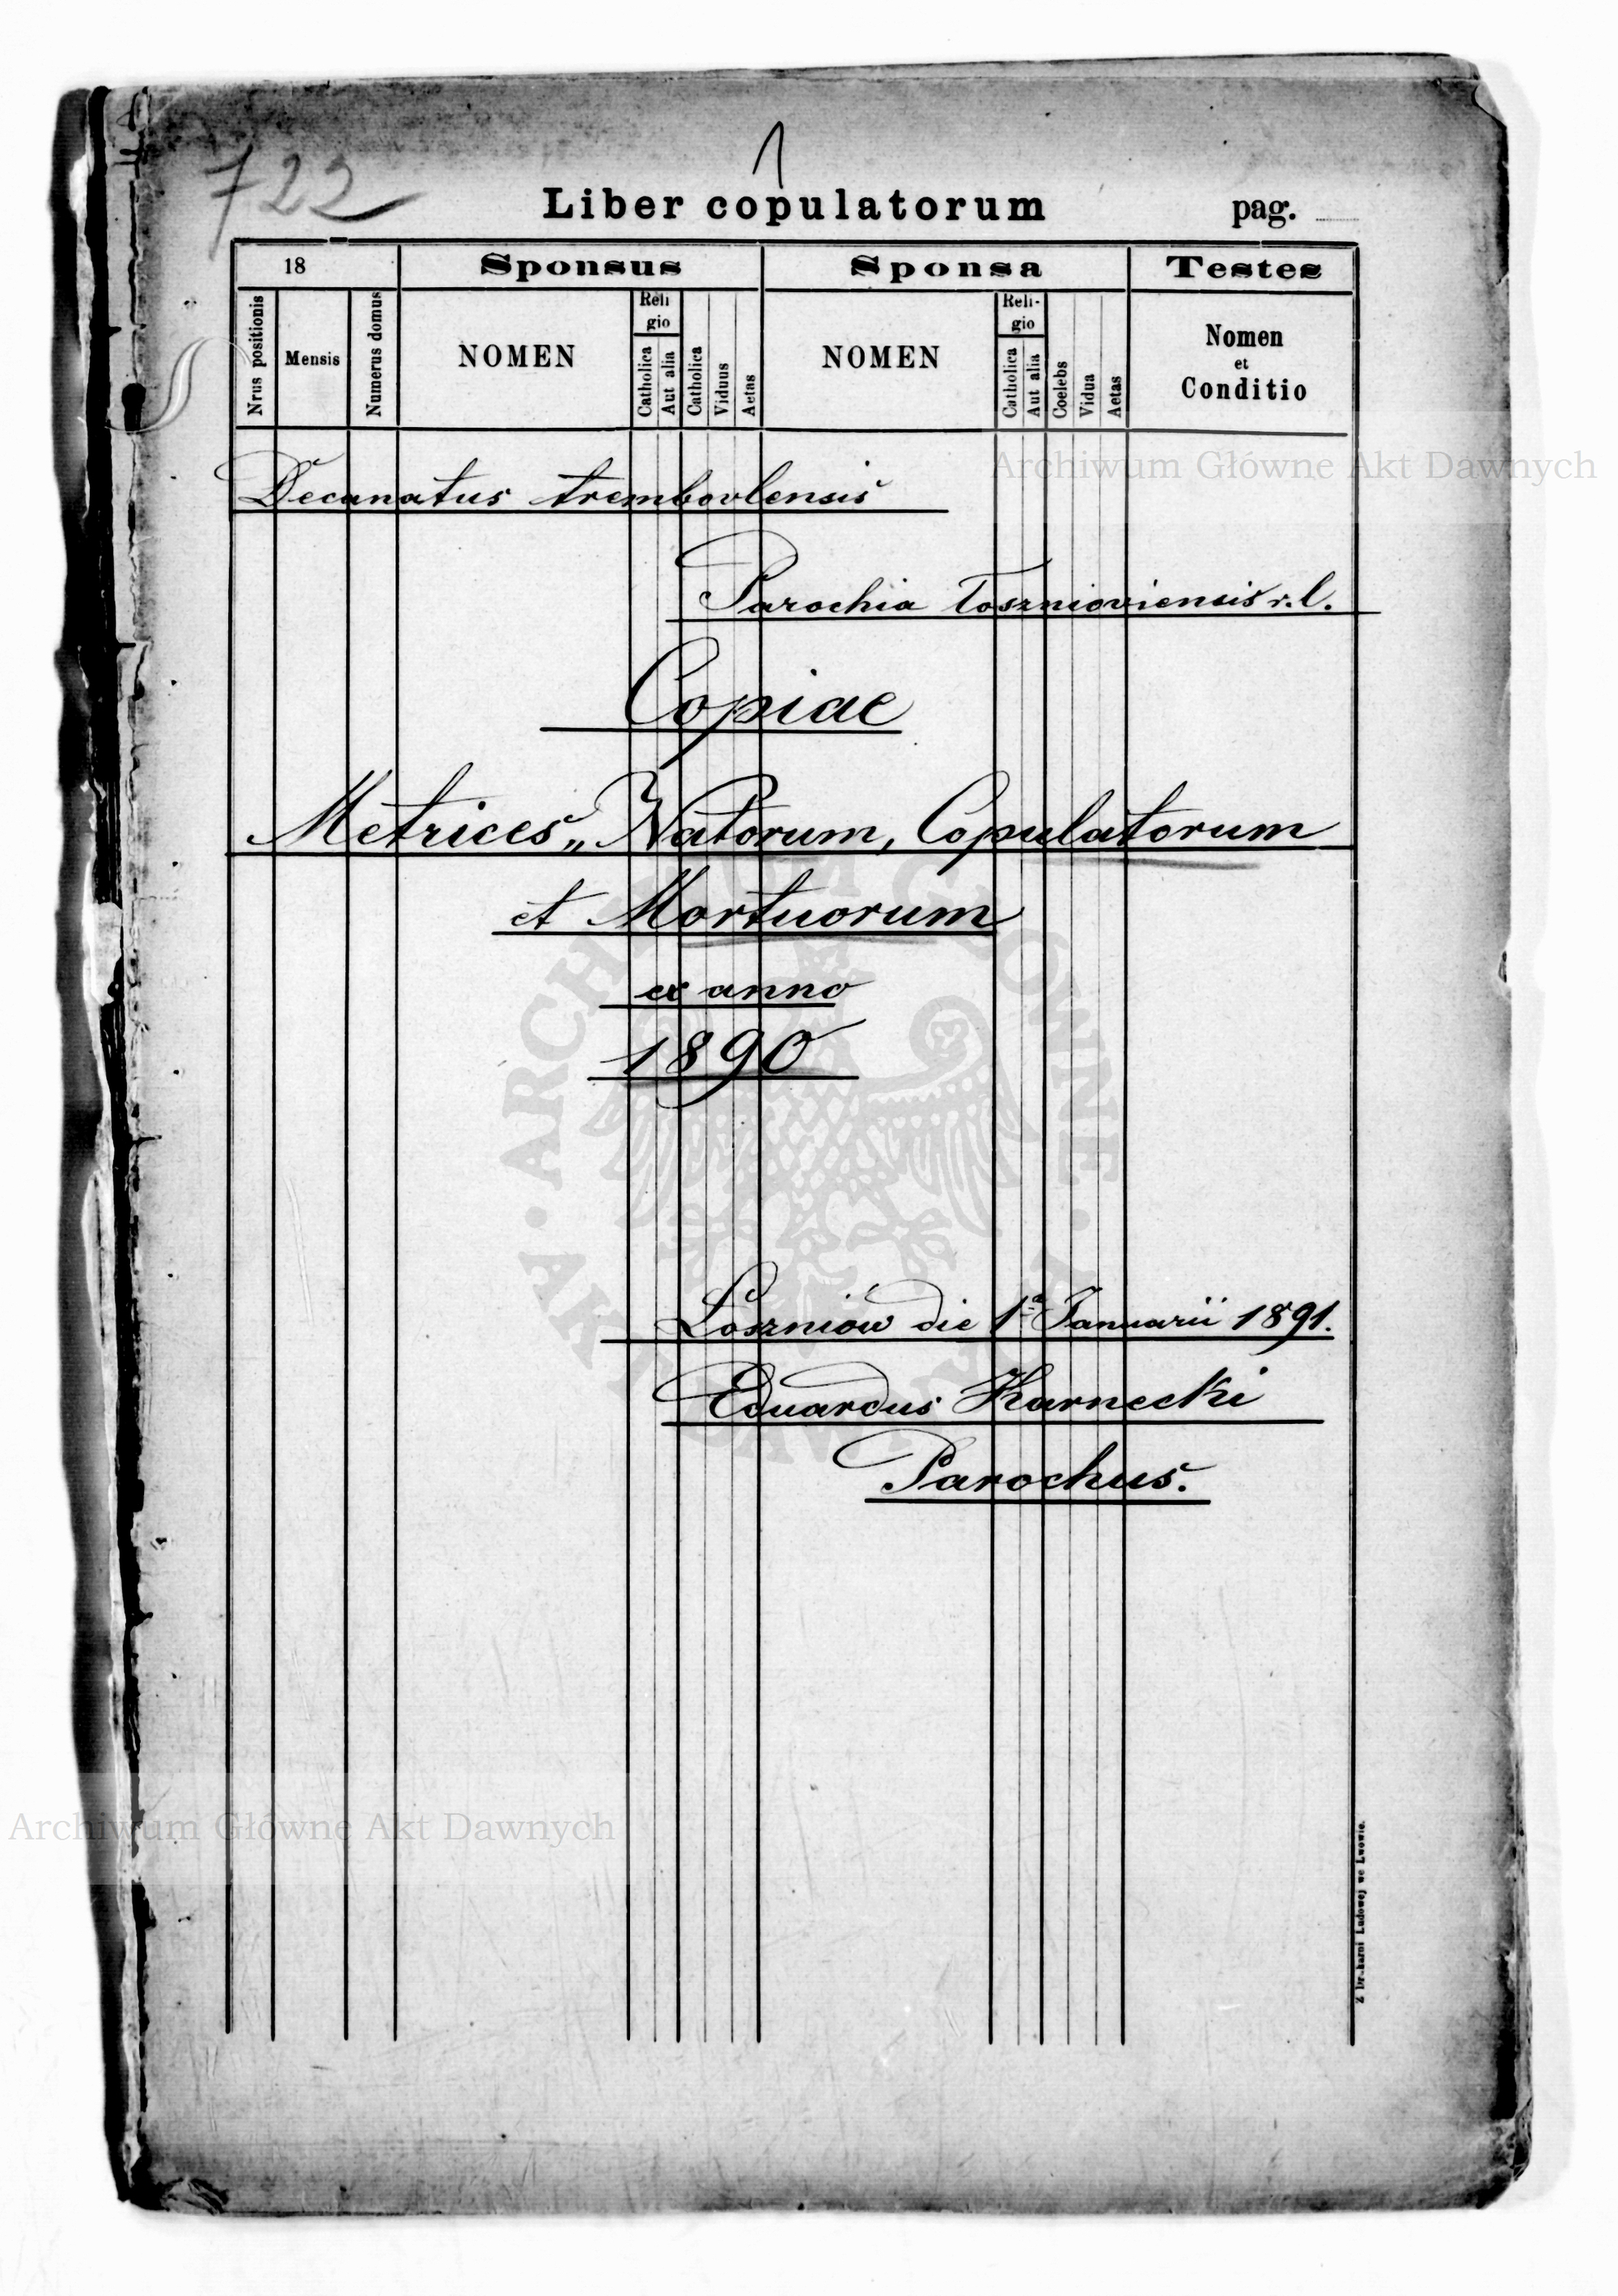 1
722
Liber copulatorum pag.
18 Sponsus Sponsa Testes
Nrus positionis Mensis Numerus domus NOMEN Reli gio Catholica Aut alia Catholica Viduus Aetas NOMEN Reli- gio Catholica Aut alia Coelebs Vidua Aetas Nomen et Conditio
Archiwum Główne Akt Dawnych
Decanatus trembovlensis
Parochia Łosznioviensis r. l.
Copiae
Metrices „Natorum, Copulatorum
et Mortuorum
ex anno
1890
ARCHIWUM GŁÓWNE AKT DAWNYCH
Łoszniów die 1ª Januarii 1891.
Eduardus Karnecki
Parochus.
Archiwum Główne Akt Dawnych
Z Drukarni Ludowej we Lwowie.